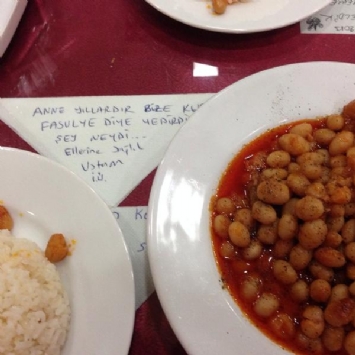 ANNE YILLARDIR BİZE KU
FASULYE DİYE YEDİRDİ
ŞEY NEYDİ...
Ellerine Sağlık
Ustam